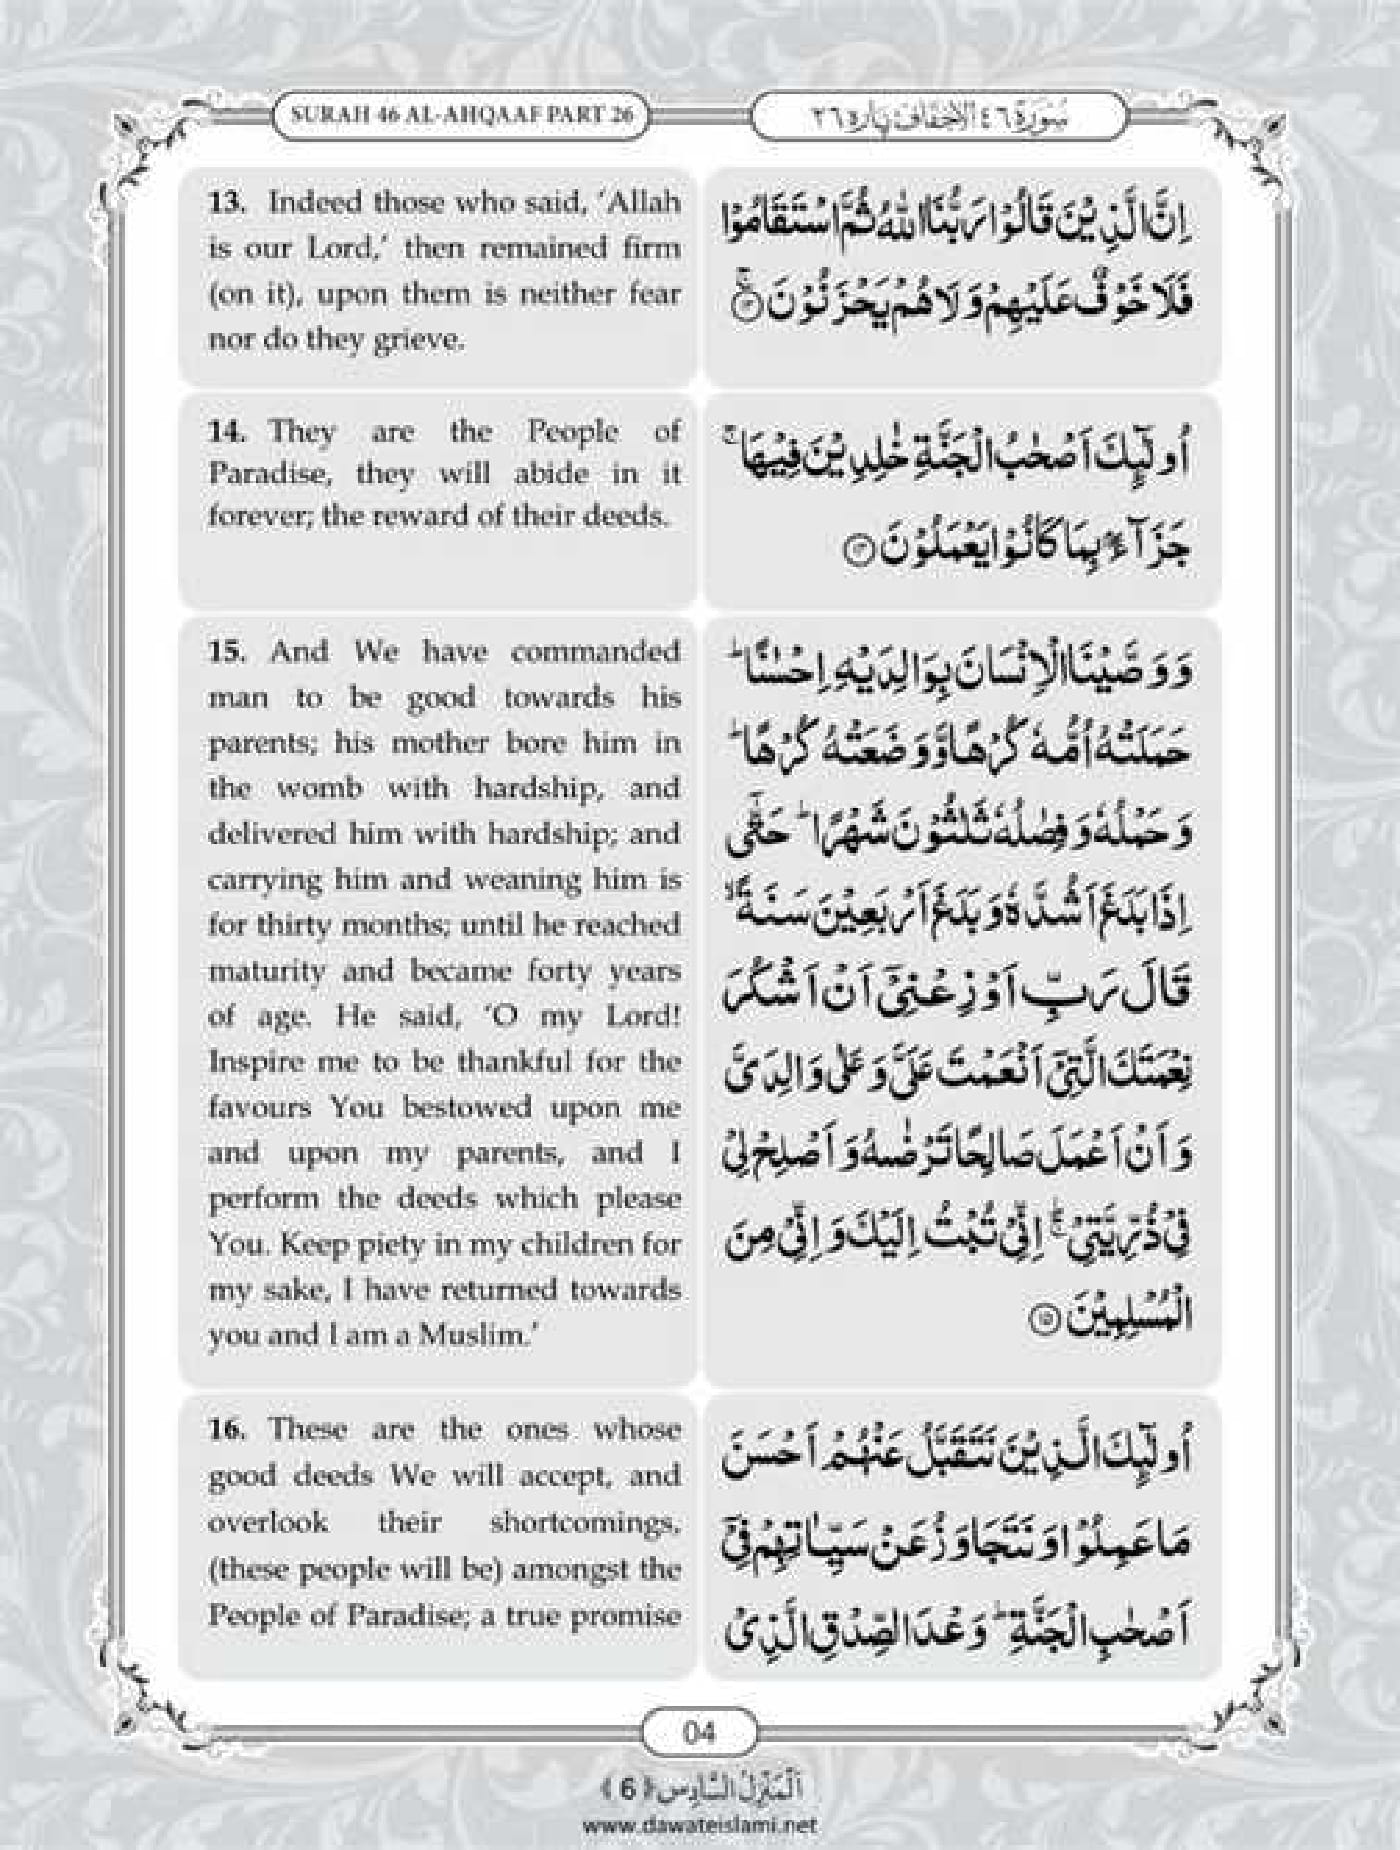 SURAH 46 AL-AHQAAF PART 26
سُوْرَة ٤٦ الاحقاف پاره ٢٦
13. Indeed those who said, ‘Allah
is our Lord,’ then remained firm
(on it), upon them is neither fear
nor do they grieve.
اِنَّ الَّذِیْنَ قَالُوْا رَبُّنَا اللّٰهُ ثُمَّ اسْتَقَامُوْا
فَلَا خَوْفٌ عَلَیْهِمْ وَ لَا هُمْ یَحْزَنُوْنَ ۚ﴿۱۳﴾
14. They are the People of
Paradise, they will abide in it
forever; the reward of their deeds.
اُولٰٓىِٕكَ اَصْحٰبُ الْجَنَّةِ خٰلِدِیْنَ فِیْهَا ۚ
جَزَآءًۢ بِمَا كَانُوْا یَعْمَلُوْنَ ﴿۱۴﴾
15. And We have commanded
man to be good towards his
parents; his mother bore him in
the womb with hardship, and
delivered him with hardship; and
carrying him and weaning him is
for thirty months; until he reached
maturity and became forty years
of age. He said, ‘O my Lord!
Inspire me to be thankful for the
favours You bestowed upon me
and upon my parents, and I
perform the deeds which please
You. Keep piety in my children for
my sake, I have returned towards
you and I am a Muslim.’
وَ وَصَّیْنَا الْاِنْسَانَ بِوَالِدَیْهِ اِحْسٰنًا ؕ
حَمَلَتْهُ اُمُّهٗ كُرْهًا وَّ وَضَعَتْهُ كُرْهًا ؕ
وَ حَمْلُهٗ وَ فِصٰلُهٗ ثَلٰثُوْنَ شَهْرًا ؕ حَتّٰۤى
اِذَا بَلَغَ اَشُدَّهٗ وَ بَلَغَ اَرْبَعِیْنَ سَنَةً ۙ
قَالَ رَبِّ اَوْزِعْنِیْۤ اَنْ اَشْكُرَ
نِعْمَتَكَ الَّتِیْۤ اَنْعَمْتَ عَلَیَّ وَ عَلٰى وَالِدَیَّ
وَ اَنْ اَعْمَلَ صَالِحًا تَرْضٰىهُ وَ اَصْلِحْ لِیْ
فِیْ ذُرِّیَّتِیْ ۚ اِنِّیْ تُبْتُ اِلَیْكَ وَ اِنِّیْ مِنَ
الْمُسْلِمِیْنَ ﴿۱۵﴾
16. These are the ones whose
good deeds We will accept, and
overlook their shortcomings,
(these people will be) amongst the
People of Paradise; a true promise
اُولٰٓىِٕكَ الَّذِیْنَ نَتَقَبَّلُ عَنْهُمْ اَحْسَنَ
مَا عَمِلُوْا وَ نَتَجَاوَزُ عَنْ سَیِّاٰتِهِمْ فِیْۤ
اَصْحٰبِ الْجَنَّةِ ؕ وَعْدَ الصِّدْقِ الَّذِیْ
04
اَلْمَنْزِلُ السَّادِس ﴿6﴾
www.dawateislami.net